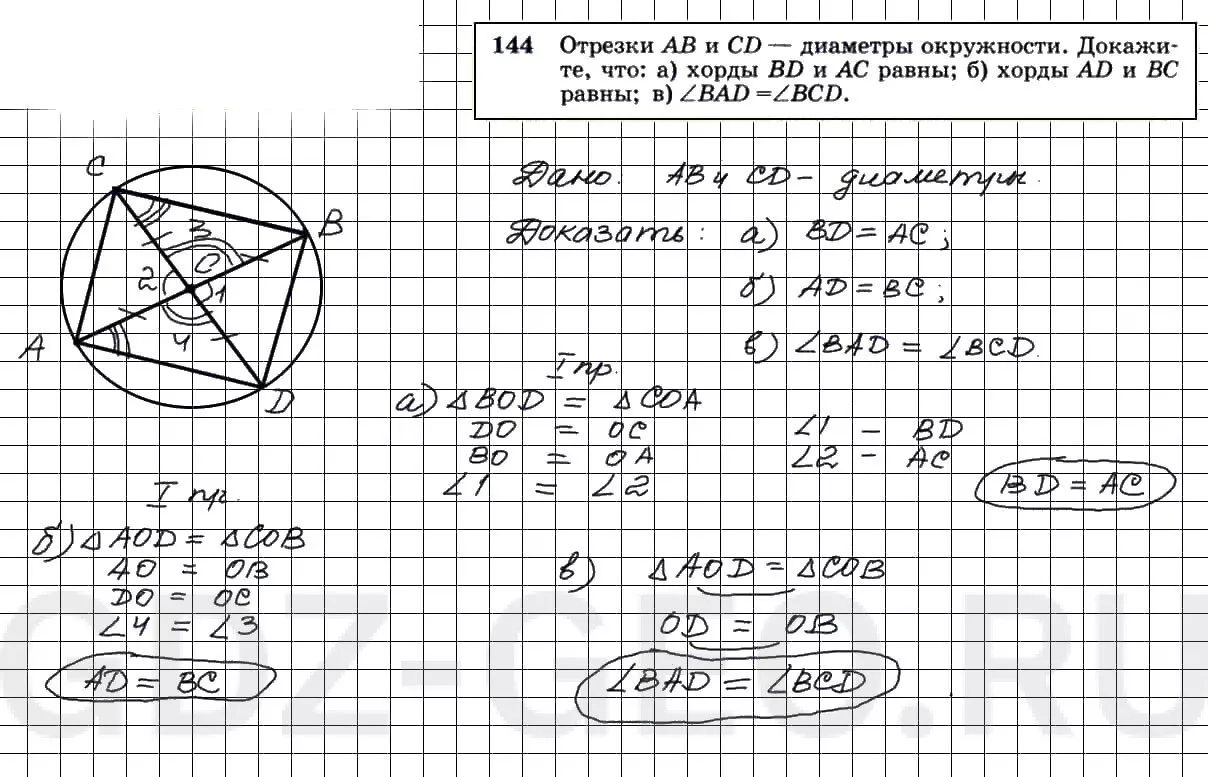 144 Отрезки AB и CD — диаметры окружности. Докажи-
те, что: а) хорды BD и AC равны; б) хорды AD и BC
равны; в) ∠BAD =∠BCD.
C
B
3
O
2
1
4
A
D
Дано: AB и CD – диаметры.
Доказать: а) BD = AC;
б) AD = BC;
в) ∠BAD = ∠BCD.
I пр.
а) △BOD = △COA
DO = OC
BO = OA
∠1 = ∠2
∠1 – BD
∠2 – AC
BD = AC
I пр.
б) △AOD = △COB
AO = OB
DO = OC
∠4 = ∠3
AD = BC
в) △AOD = △COB
OD = OB
∠BAD = ∠BCD
GDZ-GEO.RU